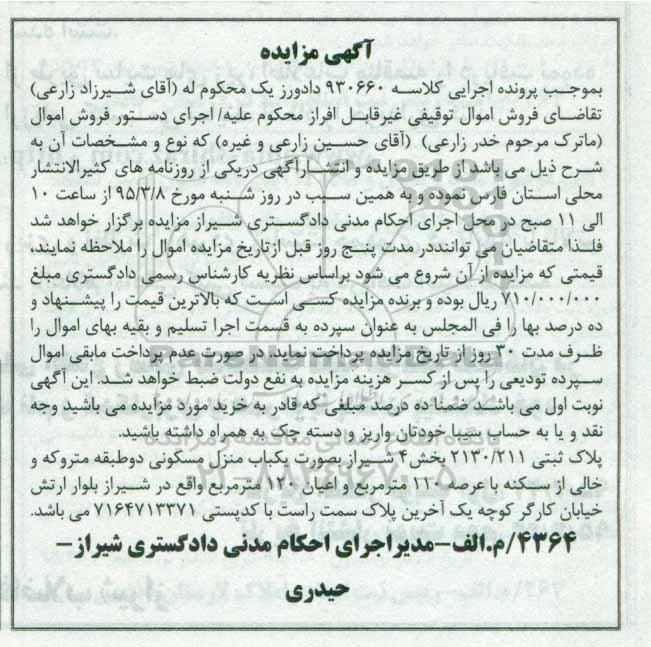 آگهی مزایده
بموجب پرونده اجرایی کلاسه ۹۳۰۶۶۰ دادورز یک محکوم له (آقای شیرزاد زارعی)
تقاضای فروش اموال توقیفی غیرقابل افراز محکوم علیه/ اجرای دستور فروش اموال
(ماترک مرحوم خدر زارعی) (آقای حسین زارعی و غیره) که نوع و مشخصات آن به
شرح ذیل می باشد از طریق مزایده و انتشارآگهی دریکی از روزنامه های کثیرالانتشار
محلی استان فارس نموده و به همین سبب در روز شنبه مورخ ۹۵/۳/۸ از ساعت ۱۰
الی ۱۱ صبح در محل اجرای احکام مدنی دادگستری شیراز مزایده برگزار خواهد شد
فلذا متقاضیان می تواننددر مدت پنج روز قبل ازتاریخ مزایده اموال را ملاحظه نمایند.
قیمتی که مزایده از آن شروع می شود براساس نظریه کارشناس رسمی دادگستری مبلغ
۷۱۰/۰۰۰/۰۰۰ ریال بوده و برنده مزایده کسی است که بالاترین قیمت را پیشنهاد و
ده درصد بها را فی المجلس به عنوان سپرده به قسمت اجرا تسلیم و بقیه بهای اموال را
ظرف مدت ۳۰ روز از تاریخ مزایده پرداخت نماید. در صورت عدم پرداخت مابقی اموال
سپرده تودیعی را پس از کسر هزینه مزایده به نفع دولت ضبط خواهد شد. این آگهی
نوبت اول می باشد ضمنا ده درصد مبلغی که قادر به خرید مورد مزایده می باشید وجه
نقد و یا به حساب سیبا خودتان واریز و دسته چک به همراه داشته باشید.
پلاک ثبتی ۲۱۳۰/۲۱۱ بخش۴ شیراز بصورت یکباب منزل مسکونی دوطبقه متروکه و
خالی از سکنه با عرصه ۱۱۰ مترمربع و اعیان ۱۲۰ مترمربع واقع در شیراز بلوار ارتش
خیابان کارگر کوچه یک آخرین پلاک سمت راست با کدپستی ۷۱۶۴۷۱۳۳۷۱ می باشد.
۴۳۶۴/م.الف-مدیراجرای احکام مدنی دادگستری شیراز-
حیدری
ParsNamadData
پایگاه اطلاع رسانی مناقصه و مزایده